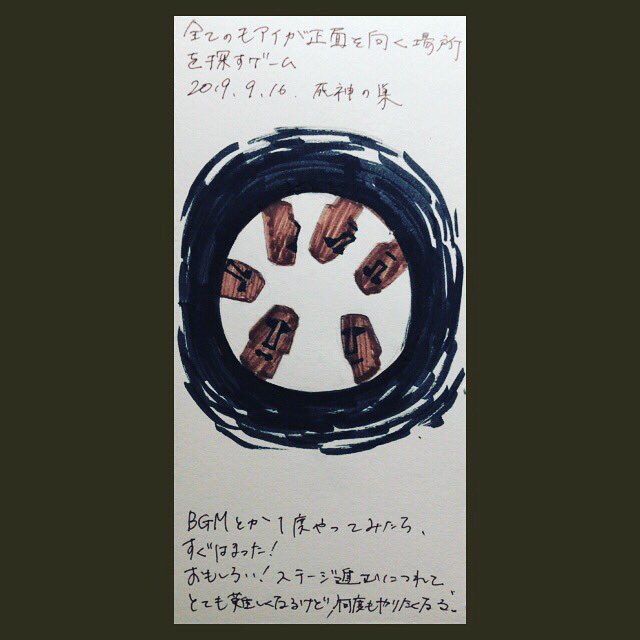 全てのモアイが正面を向く場所
を探すゲーム
2019.9.16. 死神の巣
BGMとか1度やってみたら、
すぐはまった!
おもしろい!ステージ進むにつれて、
とても難しくなるけど、何度もやりたくなる。